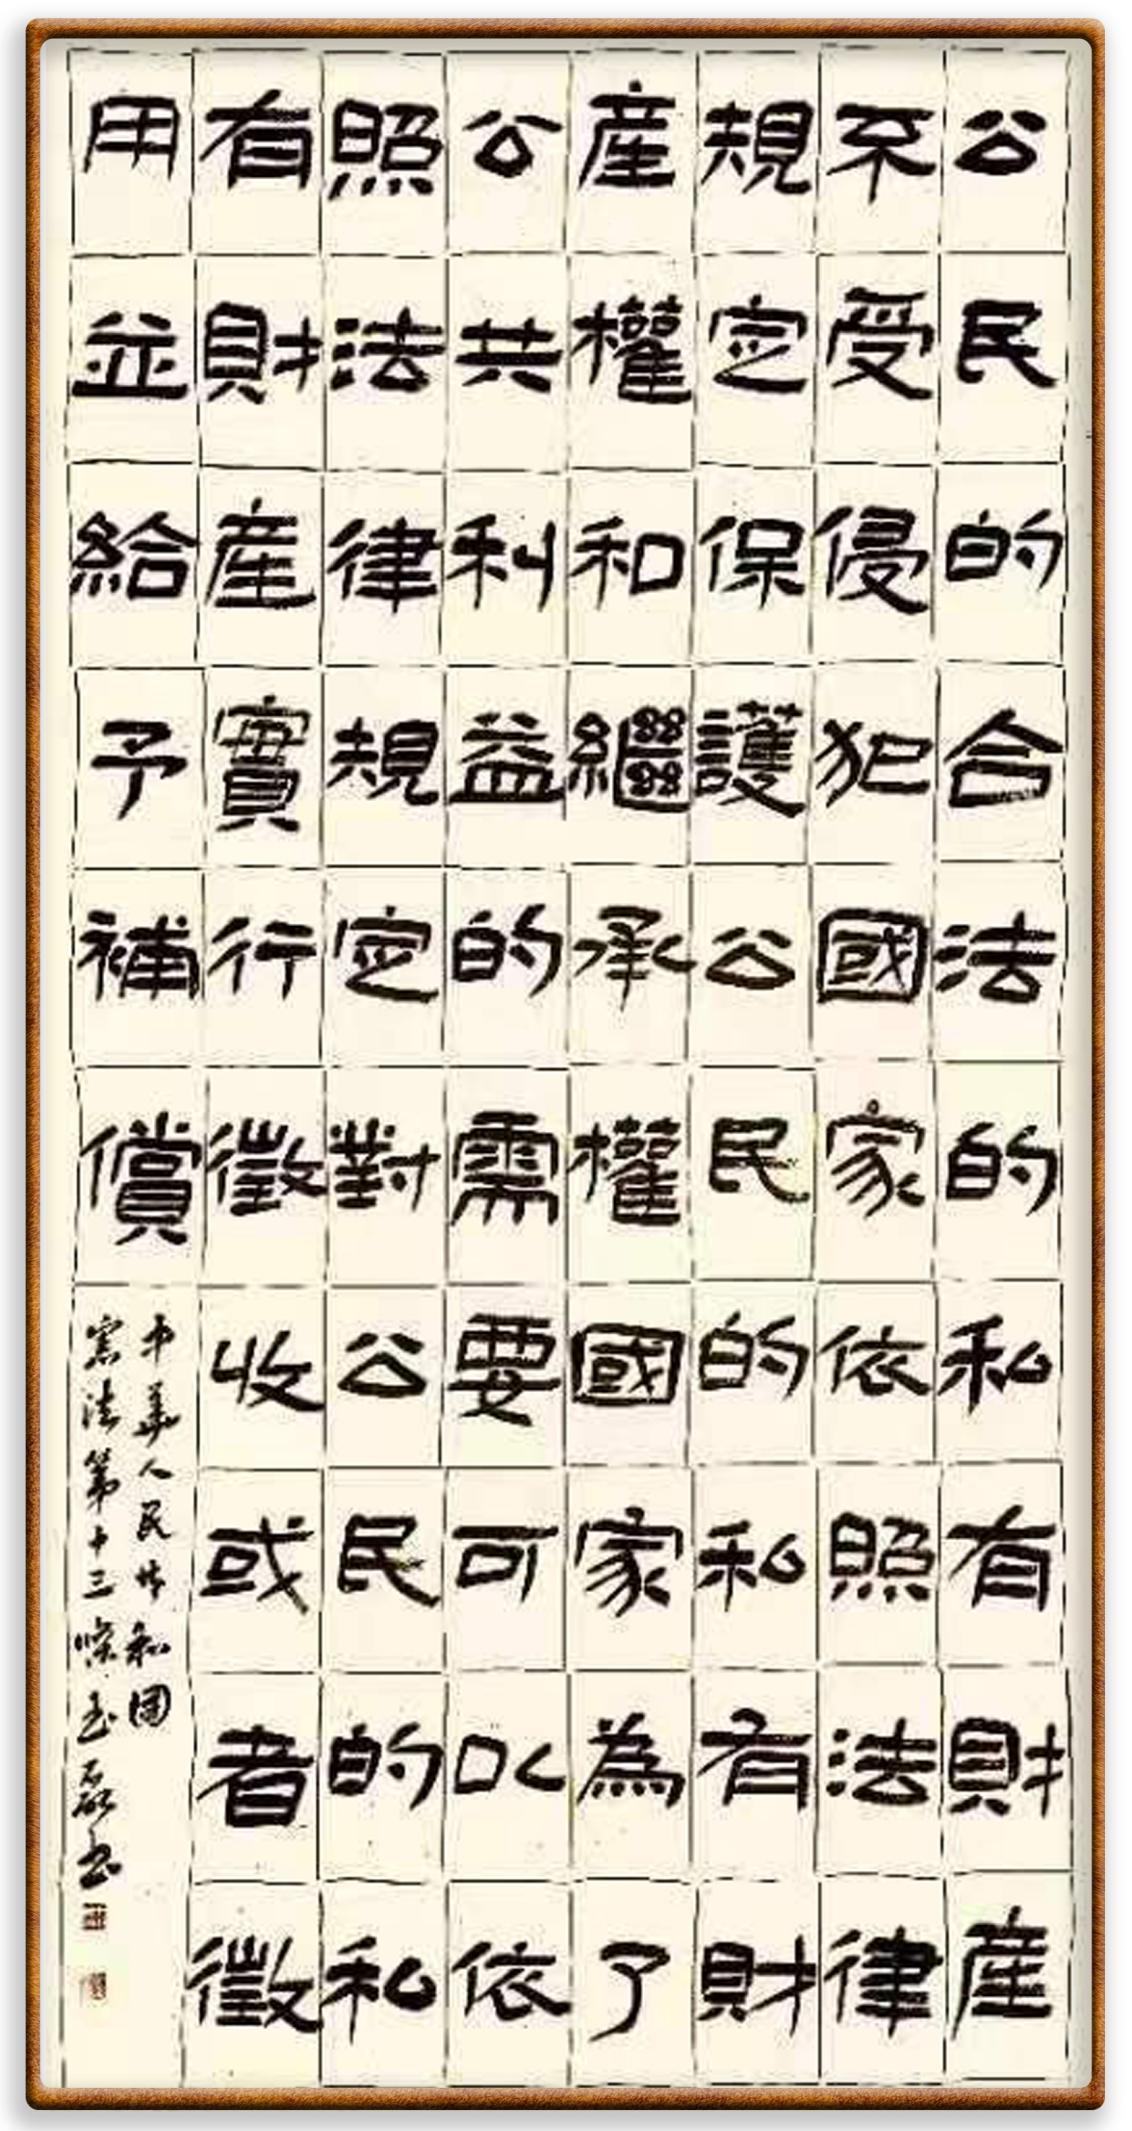 公民的合法的私有財産
不受侵犯國家依照法律
規定保護公民的私有財
産權和繼承權國家為了
公共利益的需要可以依
照法律規定對公民的私
有財産實行徵收或者徵
用並給予補償
中華人民共和國
憲法第十三條 玉磊書